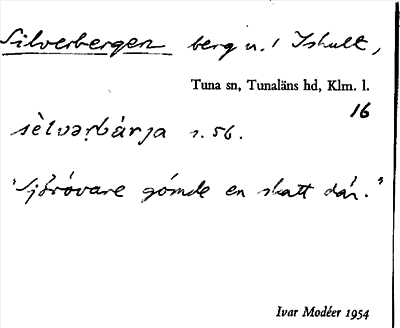 Silverbergen berg n.! Ishult,
Tuna sn, Tunaläns hd, Klm. l.
16
sèlvəṛbárja s. 56.
"Sjörövare gömde en skatt där."
Ivar Modéer 1954